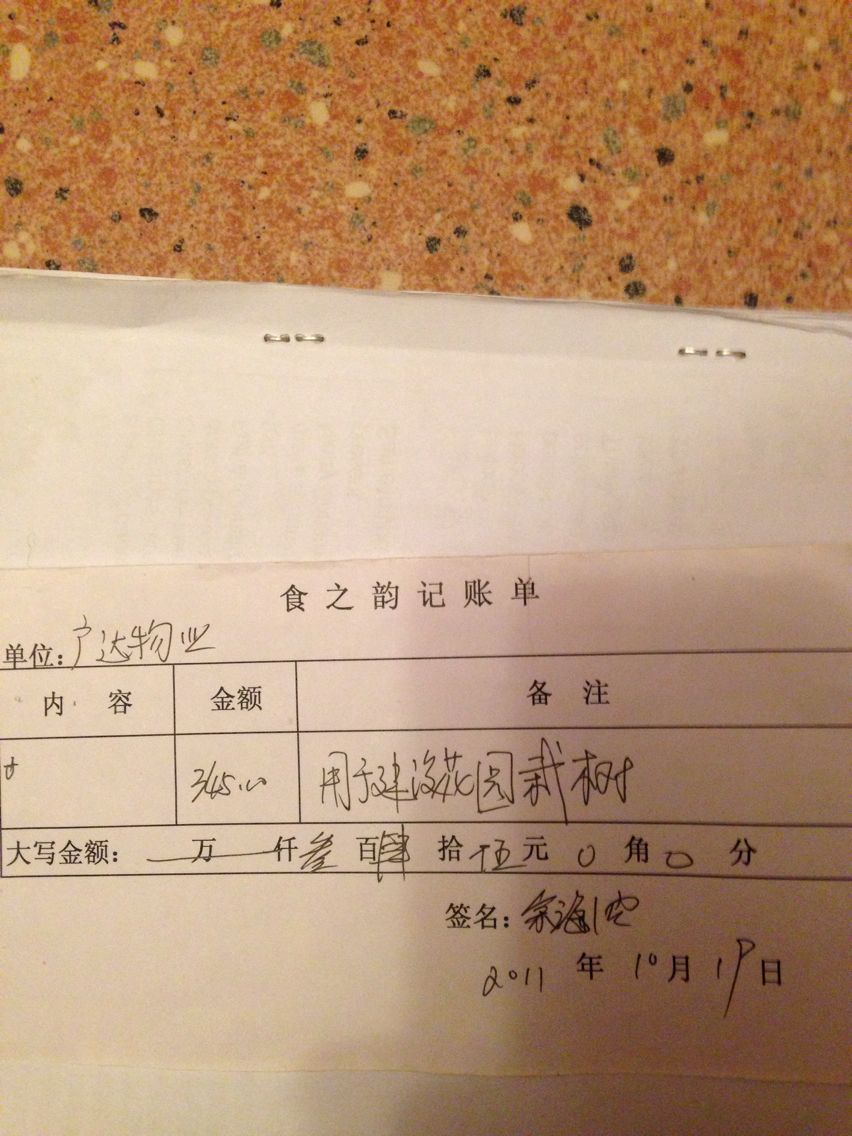 食之韵记账单
单位:广达物业
内容 金额 备注
345.00 用于建设花园栽树
大写金额: 万 仟叁百肆拾伍元0角0分
签名:
2011年10月19日